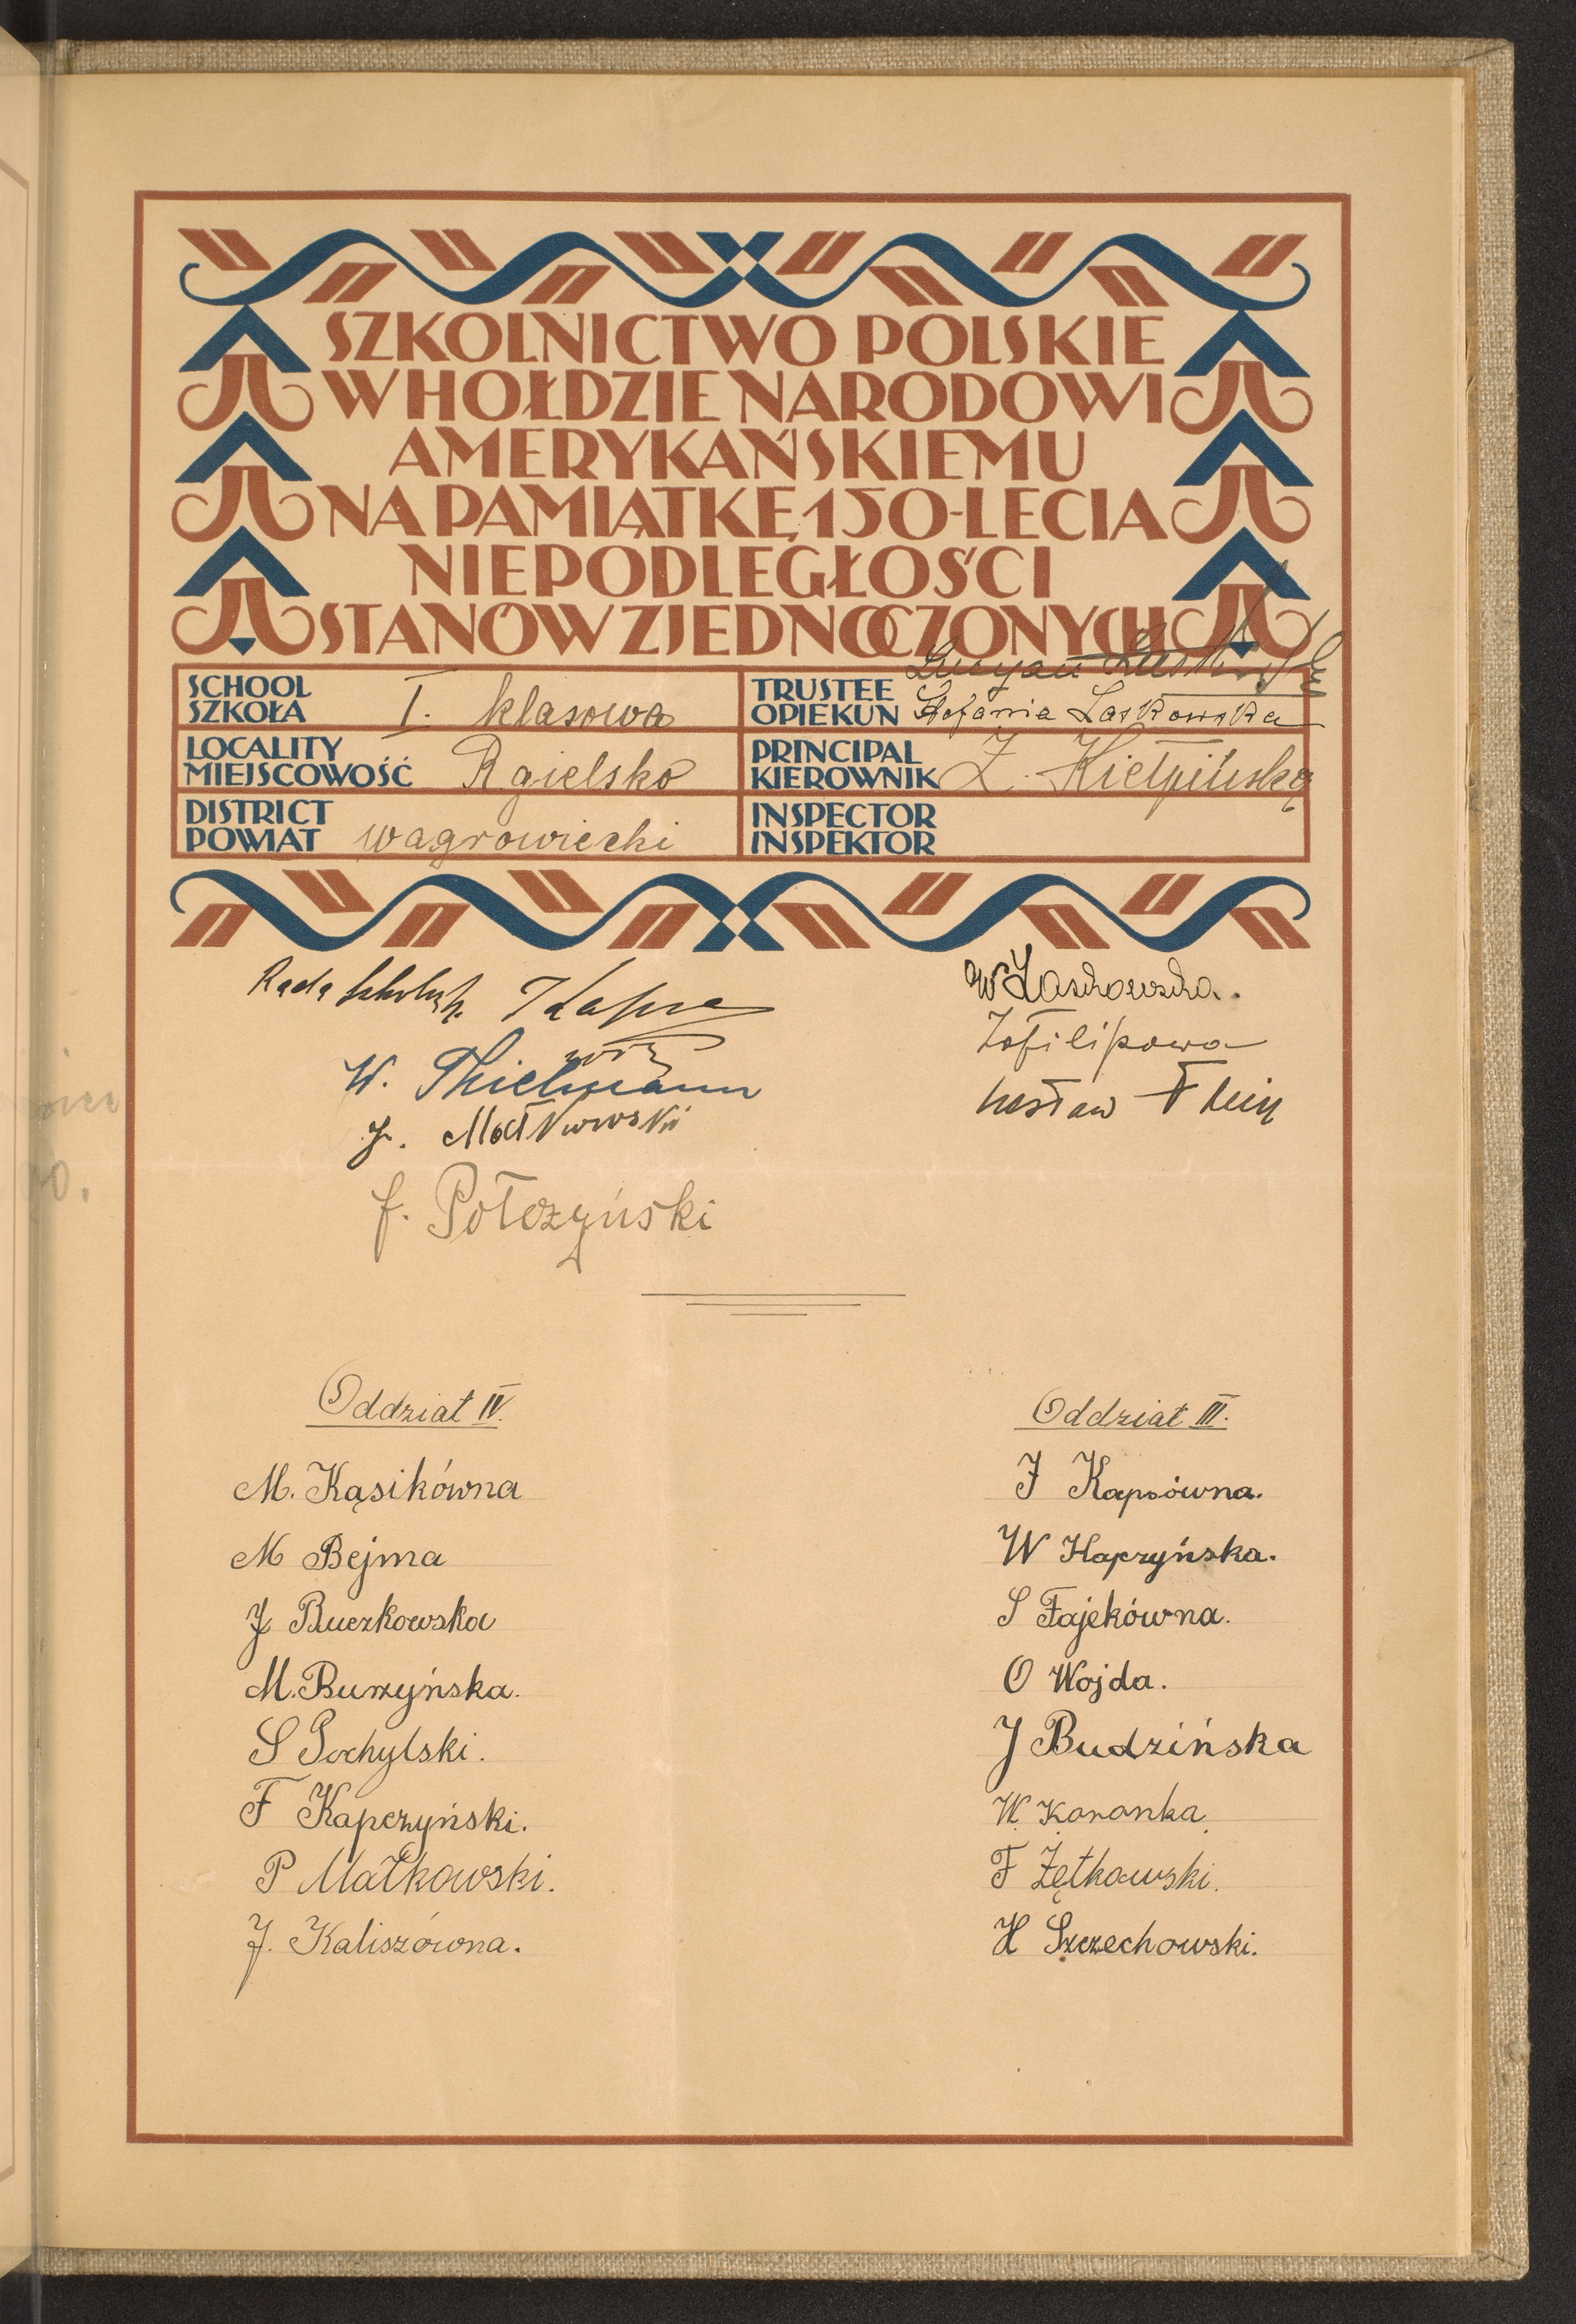 SZKOLNICTWO POLSKIE
W HOŁDZIE NARODOWI
AMERYKAŃSKIEMU
NA PAMIĄTKĘ 150-LECIA
NIEPODLEGŁOŚCI
STANÓW ZJEDNOCZONYCH
SCHOOL
SZKOŁA I. klasowa
TRUSTEE
OPIEKUN Stefania Laskowska
LOCALITY
MIEJSCOWOŚĆ Rgielsko
PRINCIPAL
KIEROWNIK Z. Kiełpińska
DISTRICT
POWIAT wągrowiecki
INSPECTOR
INSPEKTOR
Rada
W. Thielmann
J. Małkowski
f. Połczyński
W Laskowska.
Zofilipowa
Oddział IV.
M. Kąsikówna
M Bejma
J Buczkowska
M. Burzyńska.
S Pochylski.
F Kapczyński.
P Małkowski.
J. Kaliszówna.
Oddział III.
J Kapsówna.
W Kapczyńska.
S Fajekówna.
O Wojda.
J Budzińska
W. Koronka.
F Zętkowski.
H Szczechowski.